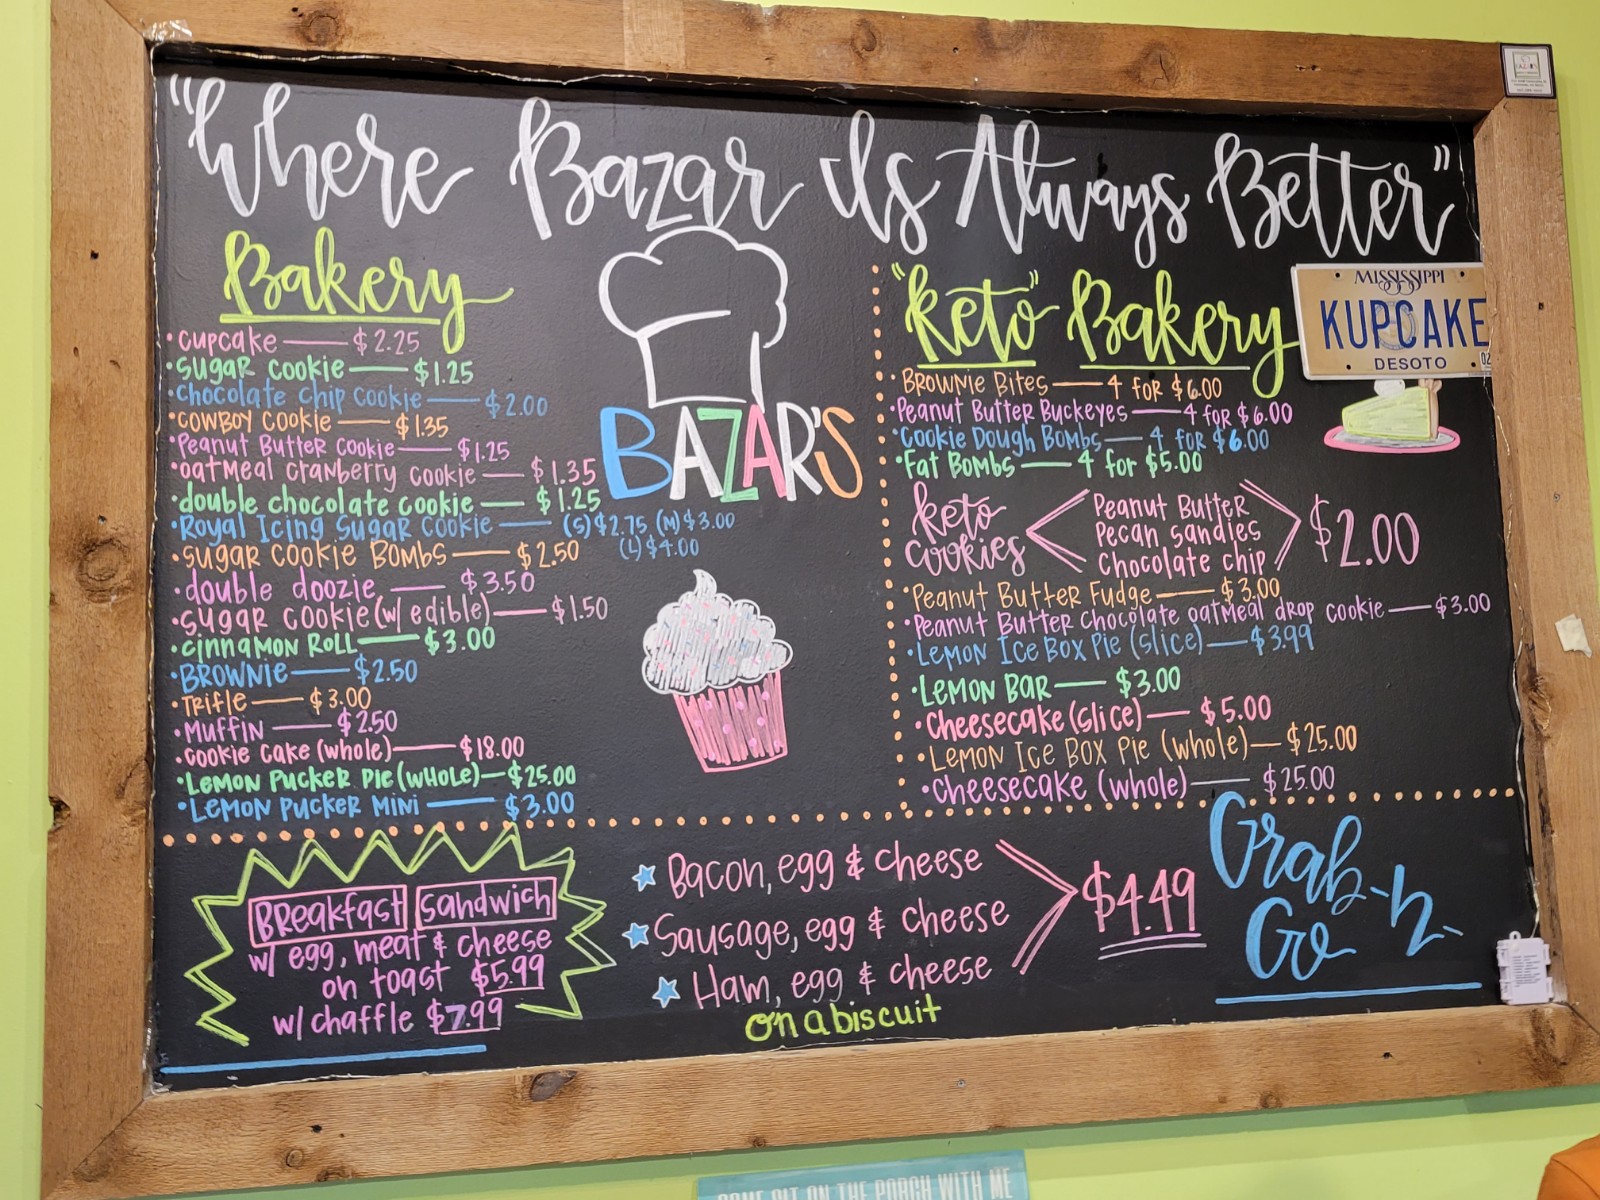 "Where Bazar Is Always Better"
Bakery
•cupcake — $2.25
•sugar cookie — $1.25
•chocolate chip cookie — $2.00
•cowboy cookie — $1.35
•Peanut Butter cookie — $1.25
•oatmeal cranberry cookie — $1.35
•double chocolate cookie — $1.25
•Royal Icing Sugar cookie — (S) $2.75, (M) $3.00
(L) $4.00
•sugar cookie Bombs — $2.50
•double doozie — $3.50
•sugar cookie (w/ edible) — $1.50
•cinnamon Roll — $3.00
•Brownie — $2.50
•Trifle — $3.00
•Muffin — $2.50
•cookie cake (whole) — $18.00
•Lemon Pucker Pie (whole) — $25.00
•Lemon Pucker Mini — $3.00
BAZAR'S
"keto" Bakery
•Brownie Bites — 4 for $6.00
•Peanut Butter Buckeyes — 4 for $6.00
•Cookie Dough Bombs — 4 for $6.00
•Fat Bombs — 4 for $5.00
keto
cookies
Peanut Butter
Pecan sandies
Chocolate chip
$2.00
•Peanut Butter Fudge — $3.00
•Peanut Butter chocolate oatmeal drop cookie — $3.00
•Lemon Ice Box Pie (slice) — $3.99
•Lemon Bar — $3.00
•Cheesecake (slice) — $5.00
•Lemon Ice Box Pie (whole) — $25.00
•Cheesecake (whole) — $25.00
MISSISSIPPI
KUPCAKE
DESOTO
02
Breakfast sandwich
w/ egg, meat & cheese
on toast $5.99
w/ chaffle $7.99
Bacon, egg & cheese
Sausage, egg & cheese
Ham, egg & cheese
on a biscuit
$4.49
Grab-n-
Go
COME SIT ON THE PORCH WITH ME